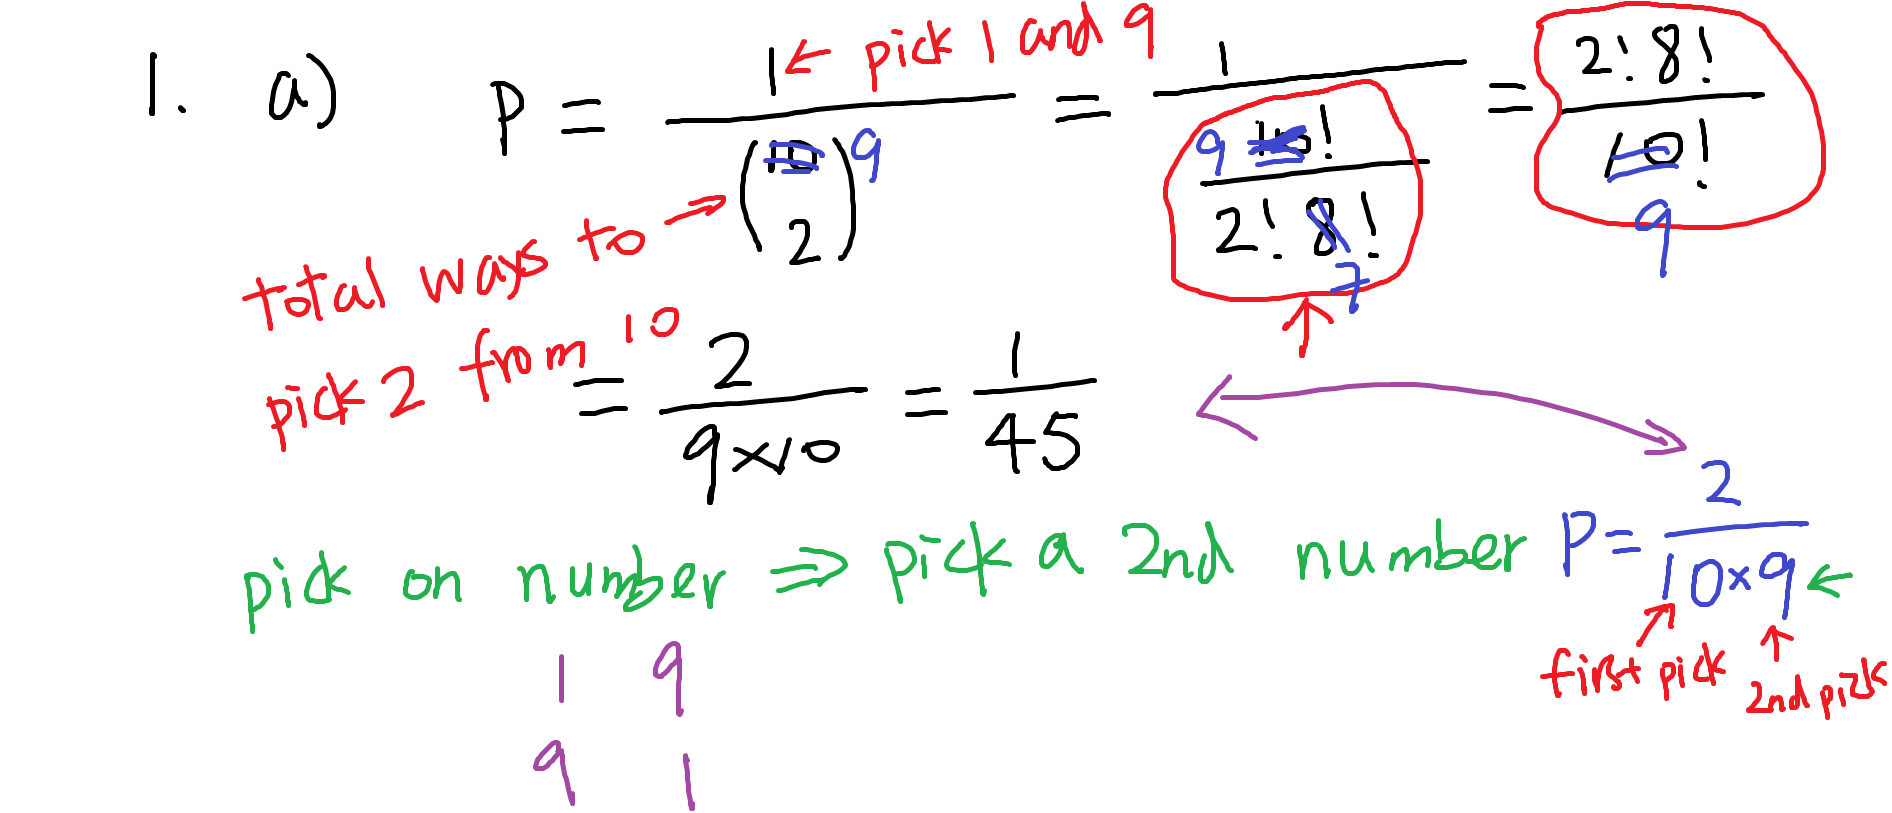 1. a) P = 1/(10 2) 9 ← pick 1 and 9 = 1/(9 10!/2! 8! 7) = 2! 8!/10! 9
total ways to →
pick 2 from 10
= 2/9×10 = 1/45
pick on number ⇒ pick a 2nd number P = 2/10×9 ←
first pick 2nd pick
1 9
9 1